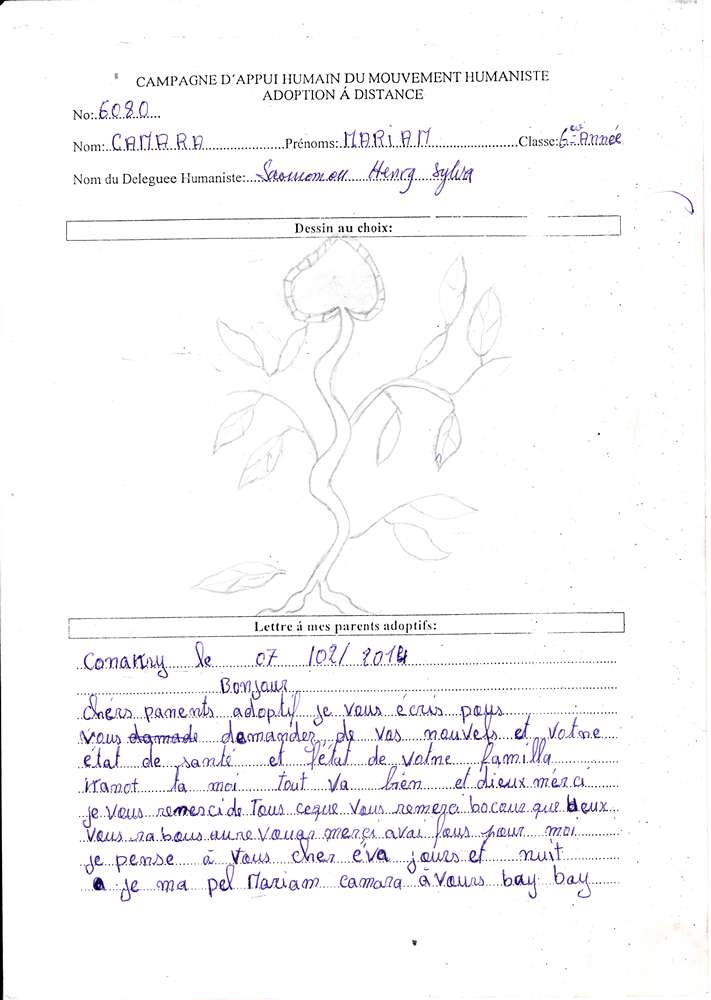 CAMPAGNE D'APPUI HUMAIN DU MOUVEMENT HUMANISTE
ADOPTION Á DISTANCE
No: 6080
Nom: CAMARA Prénoms: MARIAM Classe: 6ème Année
Nom du Deleguee Humaniste: Henry Sylva
Dessin au choix:
Lettre á mes parents adoptifs:
Conakry le 07 /02/ 2014
Bonjour
chers parents adoptif je vous écris pours
vous demander de vos nouvels et votre
état de santé et l'état de votre familla
kanot ta moi tout va bien et dieux mérci
je vous remerci de Tous ceque vous remerci bocour que Deux
vous merci pour moi
je pense à vous cher éva jours et nuit
je ma pel Mariam camara à vours bay bay